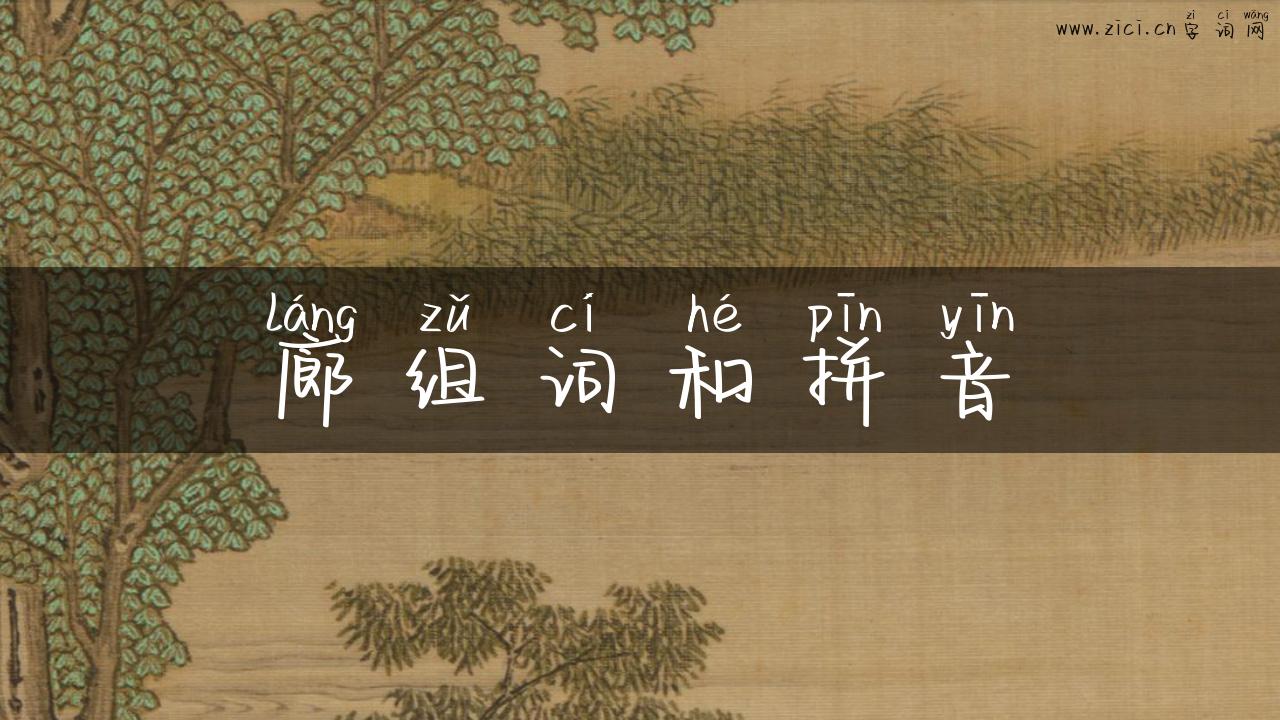 zì cí wǎng
www.zici.cn字词网
láng zǔ cí hé pīn yīn
廊组词和拼音